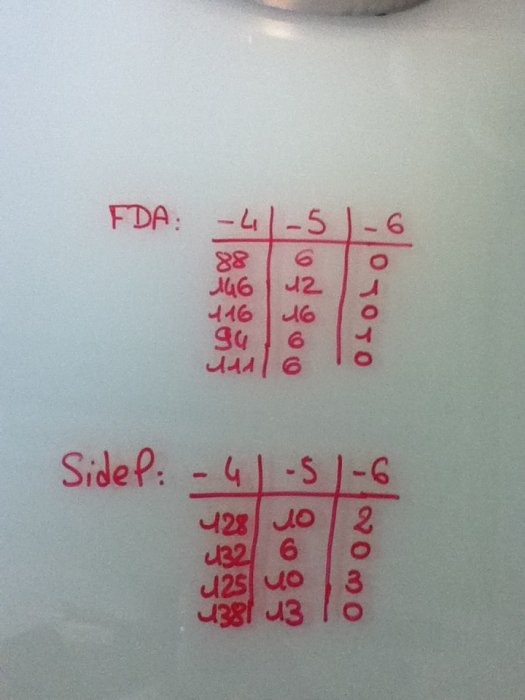 FDA: -4 | -5 | -6
88 6 0
146 12 1
116 16 0
94 6 1
111 6 0
SideP: -4 | -5 | -6
128 10 2
132 6 0
125 10 3
138 13 0